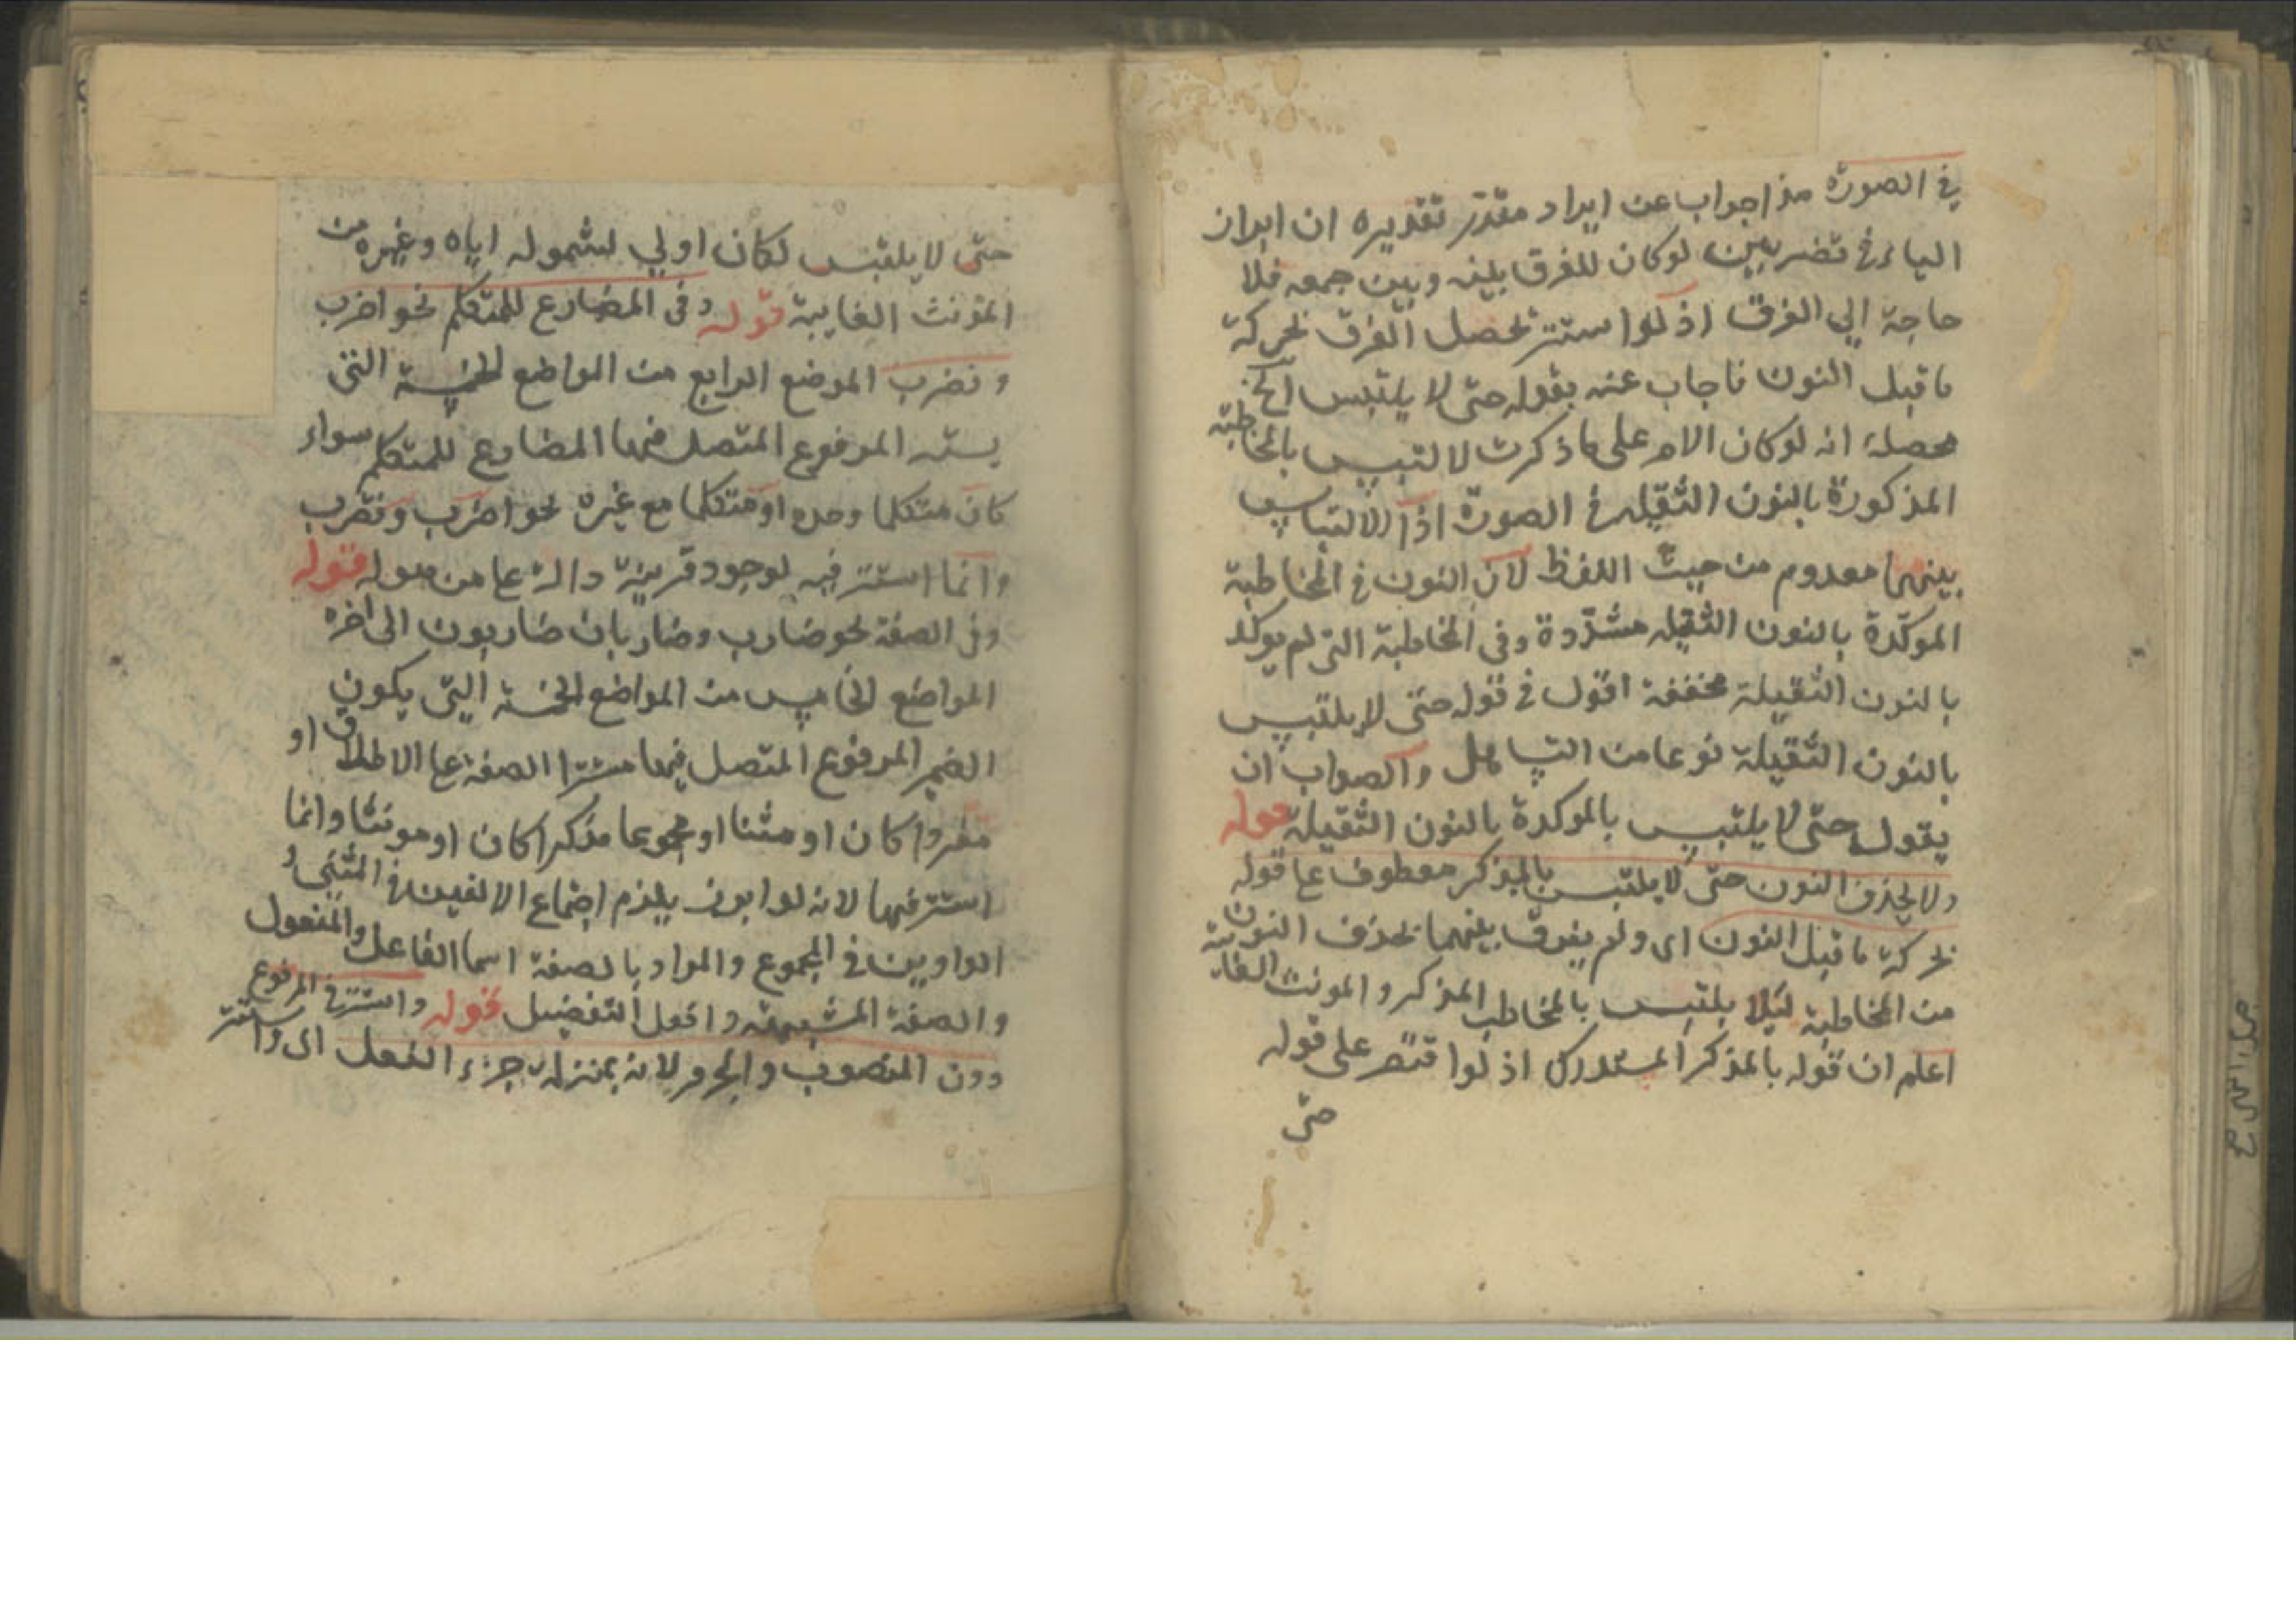 في الصورة هذا جواب عن ايراد مقدر تقديره ان ابراز
الياء في تضربين لو كان للفرق بينه وبين جمعه فلا
حاجة الي الفرق اذ لو استتر تحصل الفرق بحركة
ما قبل النون فاجاب عنه بقوله حتى لا يلتبس الخ
محصله انه لو كان الامر على ما ذكرت لالتبس بالمخاطبة
المذكورة بالنون الثقيلة في الصورة اذ الالتباس
بينهما معدوم من حيث اللفظ لان النون في المخاطبة
الموكدة بالنون الثقيلة مشددة وفي المخاطبة التي لم يوكد
بالنون الثقيلة مخففة اقول في قوله حتى لا يلتبس
بالنون الثقيلة نوعا من التساهل والصواب ان
يقول حتى لا يلتبس بالموكدة بالنون الثقيلة قوله
ولا يحذف النون حتى لا يلتبس بالمذكر معطوف عا قوله
بحركة ما قبل النون اى ولم يفرق بينهما بحذف النون
من المخاطبة ليلا يلتبس بالمخاطب المذكر والمونث الغايبة
اعلم ان قوله بالمذكر المستدرك اذ لو اقتصر على قوله
حتى
حتى لا يلتبس لكان اولي لشموله اياه وغيره من
المؤنث الغايبة قوله وفى المضارع للمتكلم نحو اضرب
ونضرب الموضع الرابع من المواضع الخمسة التى
يستتر المرفوع المتصل فيها المضارع للمتكلم سواء
كان متكلما وحده او متكلما مع غيره نحو اضرب ونضرب
وانما استتر فيه لوجود قرينة دالة عا من قوله
وفى الصفة نحو ضارب وضاربان ضاربون الى اخره
المواضع الخامس من المواضع الخمسة التى يكون
الضمير المرفوع المتصل فيها مستترا الصفة عا الاطلاق او
مفردا كان او مثنا او مجموعا مذكرا كان او مونثا وانما
استتر فيها لانه لو ابرز يلزم اجتماع الالفين في المثنى و
الواوين في المجموع والمراد بالصفة اسما الفاعل والمفعول
والصفة المشبهة وافعل التفضيل قوله واستتر في المرفوع
دون المنصوب والمجرور لانه بمنزلة جزء الفعل اى واستتر